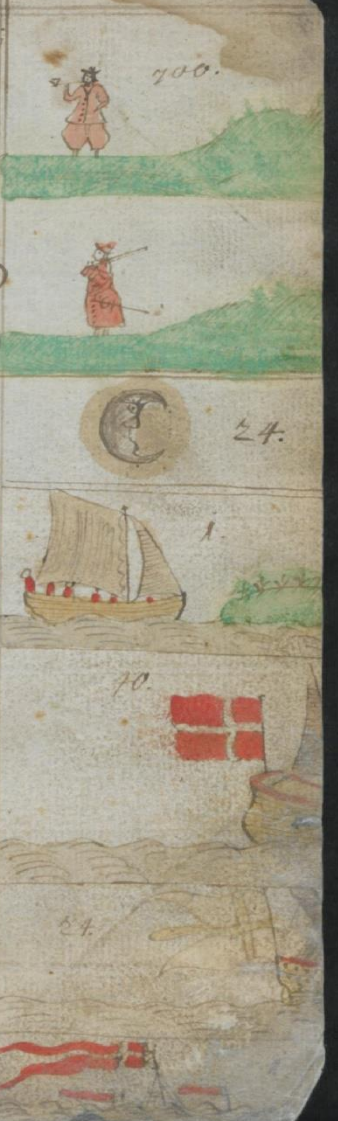 700.
24.
1.
10.
24.